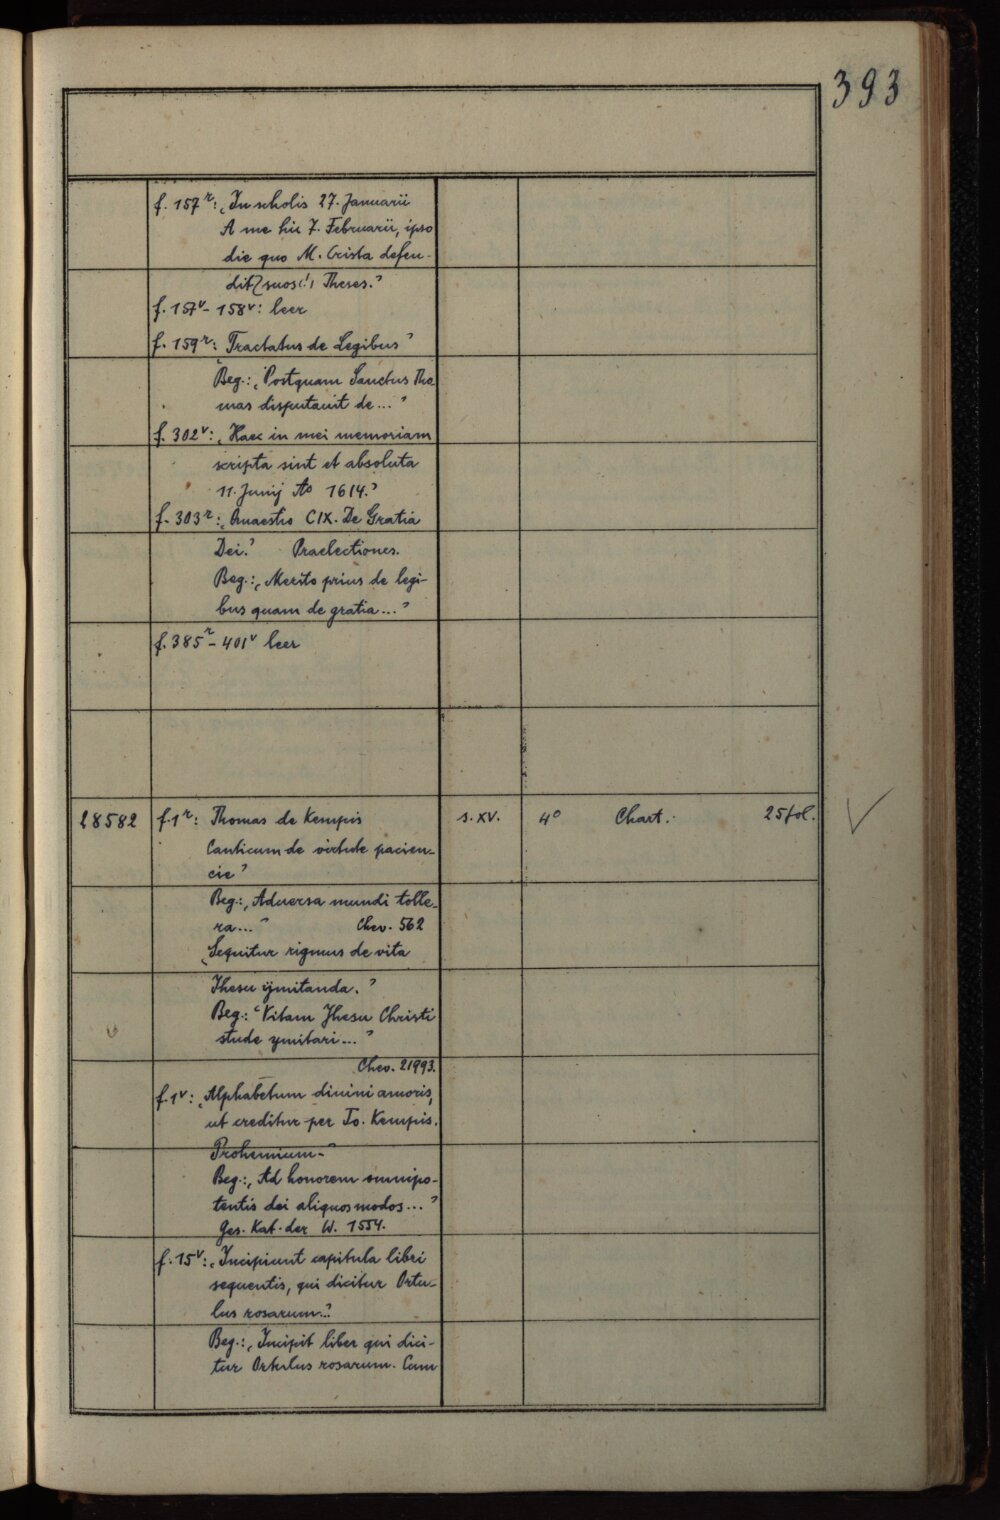 393
f. 157r: „In scholis 27. Januarii
A me hic 7. Februarii, ipso
die quo M. Crista defen-
dit suos (!) Theses."
f. 157v - 158v: leer
f. 159r: „Tractatus de Legibus"
Beg.: „Postquam Sanctus Tho-
mas disputauit de..."
f. 302v: „Haec in mei memoriam
scripta sint et absoluta
11. Junij Ao 1614."
f. 303r: „Quaestio CIX. De Gratia
Dei." Praelectiones.
Beg.: „Merito prius de legi-
bus quam de gratia..."
f. 385r - 401v leer
28582 f. 1r: Thomas de Kempis s. XV. 4o Chart. 25 fol.
Canticum de virtute pacien-
cie"
Beg.: „Aduersa mundi tolle-
ra..." Chev. 562
„Sequitur rigmus de vita
Jhesu ÿmitanda."
Beg.: „Vitam Jhesu Christi
stude ymitari..."
Chev. 21993.
f. 1v: „Alphabetum diuini amoris,
ut creditur per To. Kempis.
Prohemium."
Beg.: „Ad honorem omnipo-
tentis dei aliquos modos..."
Ges. Kat. der W. 1554.
f. 15v: „Incipiunt capitula libri
sequentis, qui dicitur Ortu-
lus rosarum..."
Beg.: „Incipit liber qui dici-
tur Ortulus rosarum. Cum